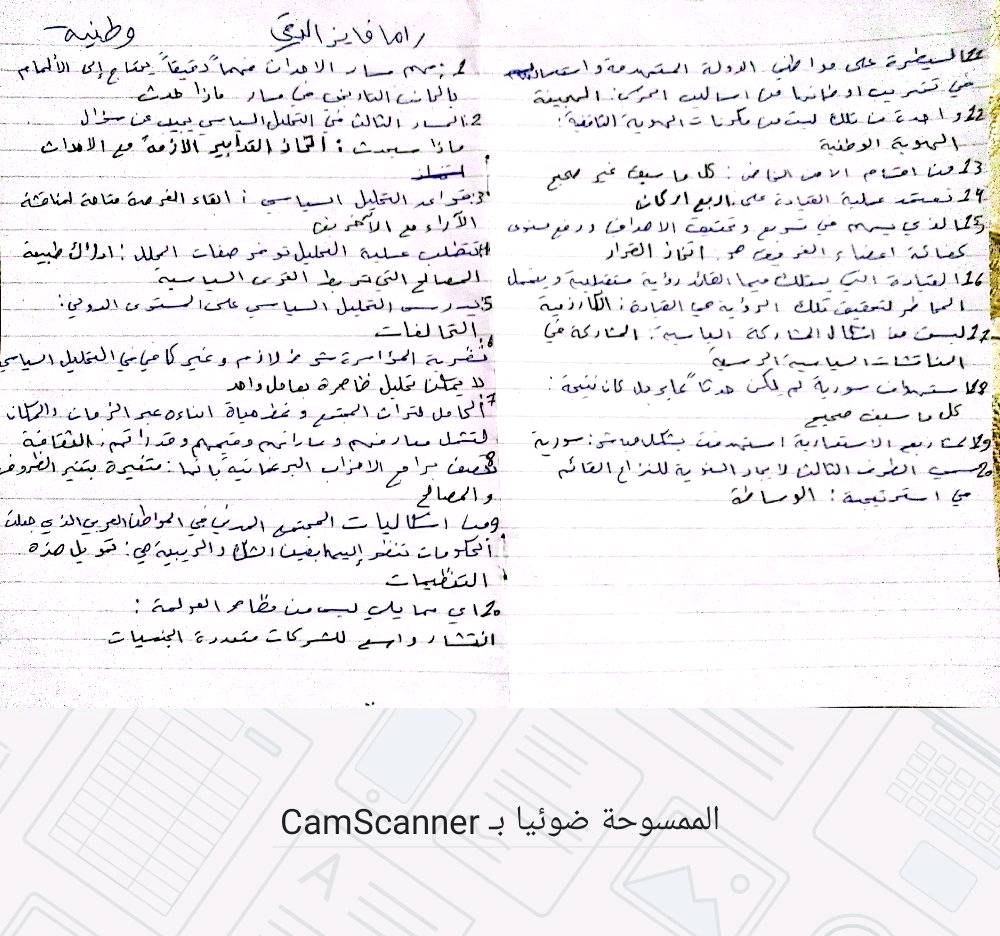 راما فايز الدقي
وطنية
1. فهم مسار الاحداث فهماً دقيقاً يحتاج إلى الألمام
بالجانب التاريخي في مسار ماذا حدث
2. المسار الثالث في التحليل السياسي يجيب عن سؤال
ماذا سيحدث: اتخاذ التدابير الأزمة مع الاحداث
3. قواعد التحليل السياسي: ابقاء الفرصة متاحة لمناقشة
الآراء مع الآخرين
4. تتطلب عملية التحليل توفر صفات المحلل: ادراك طبيعة
المصالح التي تربط القوى السياسية
5. يدرس التحليل السياسي على المستوى الدولي:
التحالفات
6. نظرية المؤامرة شرط لازم وغير كافي في التحليل السياسي
لا يمكننا تحليل ظاهرة بعامل واحد
7. الحامل لتراث المجتمع ونمط حياة ابناءه عبر الزمان والمكان
لتشمل معارفهم ومهاراتهم وقيمهم وقدراتهم: الثقافة
8. تتصف برامج الاحزاب البرغماتية بانها: متغيرة بتغير الظروف
والمصالح
9. من اشكاليات المجتمع المدني في المواطن العربي الذي جعلت
الحكومات تنظر إليها بعين الشك والريبة هي: تمويل هذه
التنظيمات
20. اي مما يلي ليس من مظاهر العولمة:
انتشار واسع للشركات متعددة الجنسيات
11. السيطرة على مواطني الدولة المستهدفة واستعمالهم
في تخريب اوطانهم من اساليب الحرب: الهجينة
12. واحدة من تلك ليست من مكونات الهوية الثقافية:
الهوية الوطنية
13. من اقسام الامن الخاص: كل ما سبق غير صحيح
14. تعتمد عملية القيادة على اربع اركان
15. الذي يسهم في تسريع وتحقيق الاهداف ورفع مستوى
كفائة اعضاء الفريق هو: اتخاذ القرار
16. القيادة التي يمتلك فيها القائد رؤية مستقبلية ويتحمل
المخاطر لتحقيق تلك الرؤية هي القيادة: الكارزمية
17. ليست من اشكال المشاركة السياسية: المشاركة في
المناقشات السياسية الرسمية
18. استهداف سورية لم يكن حدثاً عابر بل كان نتيجة:
كل ما سبق صحيح
19. المشاريع الاستعمارية استهدفت بشكل مباشر: سورية
20. يسعى الطرف الثالث لايجاد التسوية للنزاع القائم
في استرتيجية: الوساطة
الممسوحة ضوئيا بـ CamScanner